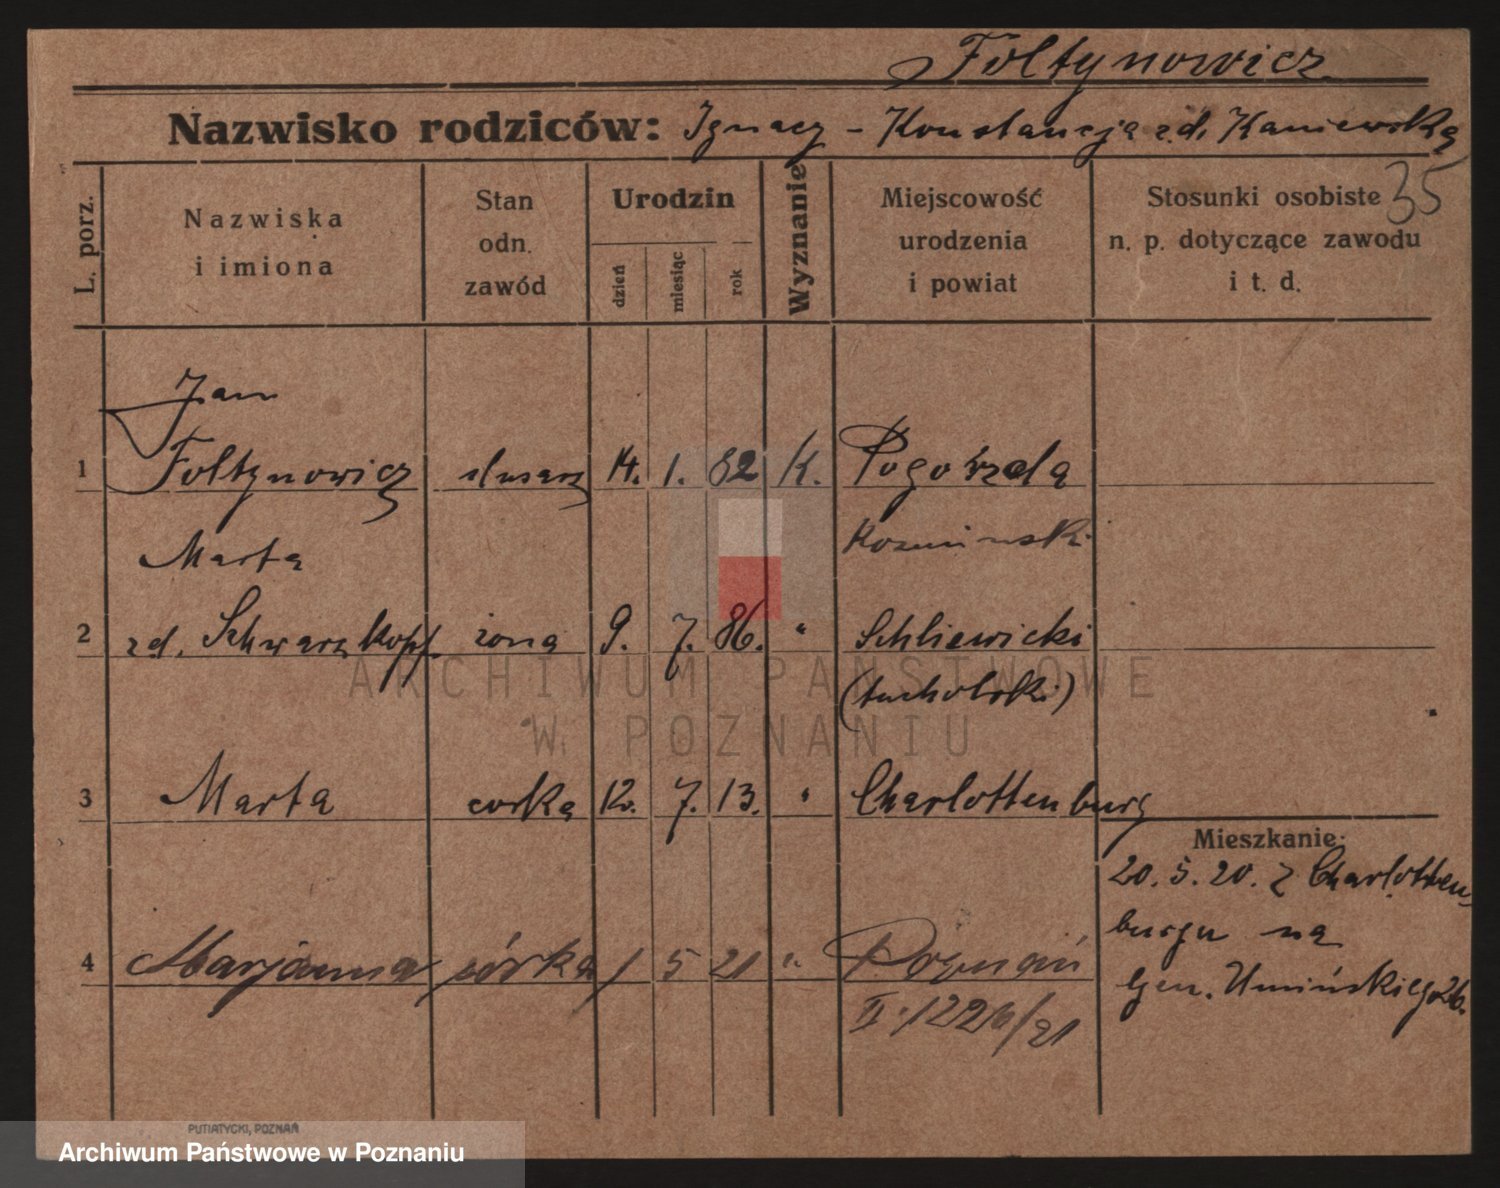 Foltynowicz
Nazwisko rodziców: Ignacy - Konstancja zd. Kaniewska
35
L. porz.
Nazwiska
i imiona
Stan
odn.
zawód
Urodzin
dzień
miesiąc
rok
Wyznanie
Miejscowość
urodzenia
i powiat
Stosunki osobiste
n. p. dotyczące zawodu
i t. d.
Jan
1 Foltynowicz ślusarz 14. 1. 82 K. Pogorzela
Koźmiński
Marta
2 zd. Schwarzkopf żona 9. 7. 86. " Schliewicki
(tucholski)
3 Marta corka 12. 7. 13. " Charlottenburg
Mieszkanie:
20. 5. 20. z Charlotten-
burgu na
Gen. Umińskiego 26.
4 Marjanna córka 1 5 21 " Poznań
II. 1226/21
ARCHIWUM PAŃSTWOWE
W POZNANIU
PUTIATYCKI, POZNAŃ
Archiwum Państwowe w Poznaniu